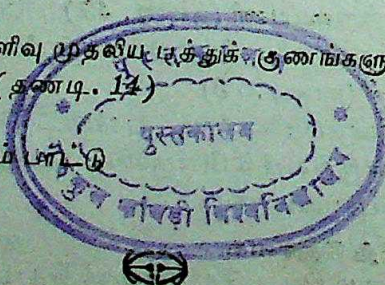 ளிவு முதலிய பத்துக் குணங்களு
(தண்டி. 14)
पुस्तकालय
गुरुकुल कांगड़ी विश्वविद्यालय